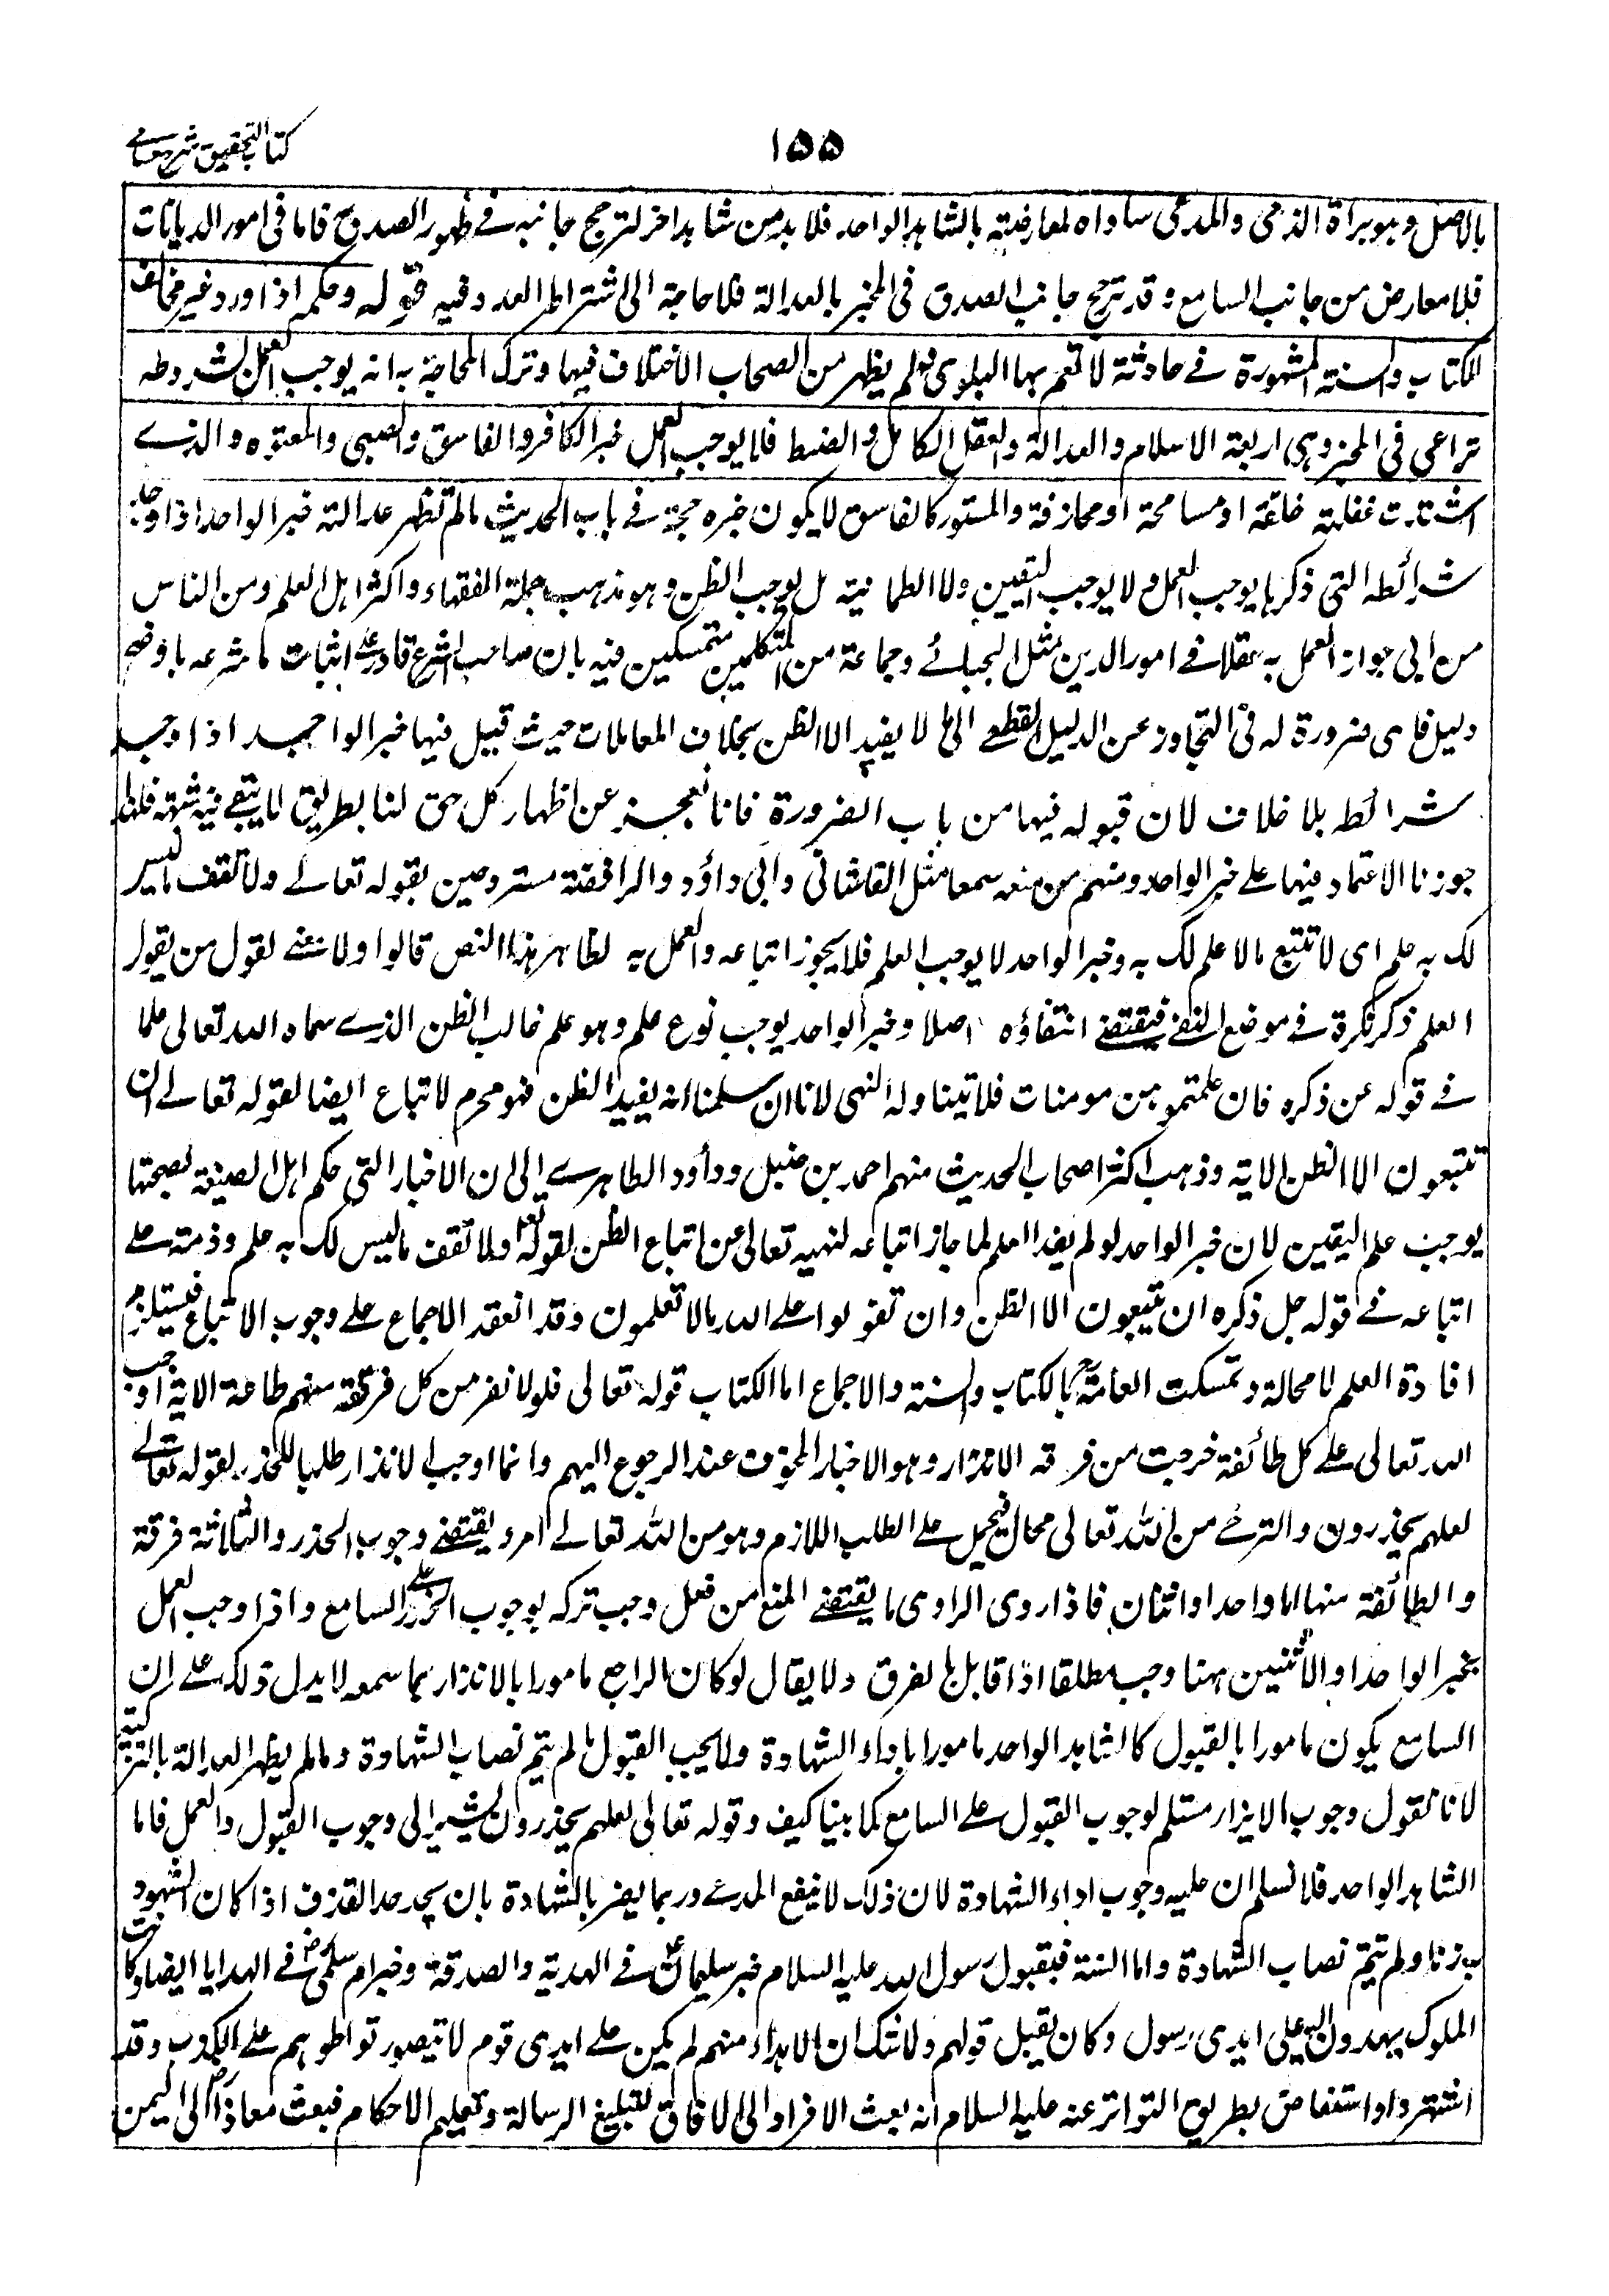 كتاب التحقيق شرح حسامي
١٥٥
بالاصل وهو براة الذمى والمدعى ساواه لمعارضته بالشاهد الواحد فلا بد من شاهد اخر لترجح جانبه فے ظهور الصدق فاما فى امور الديانات
فلا معارض من جانب السامع وقد ترجح جانب الصدق فى المخبر بالعدالة فلا حاجة الى اشتراط العدد فيه قوله وحكمه اذا ورد غير مخالف
للكتاب والسنة المشهورة فے حادثة لا تعم بها البلوى ولم يظهر من الصحاب الاختلاف فيها وترك المحاجة به انه يوجب العمل لشروطه
تراعى فى المخبر وهى اربعة الاسلام والعدالة والعقل الكامل والضبط فلا يوجب العمل خبر الكافر والفاسق والصبى والمعتوه والذے
اشتدت غفلته خلقة او مسامحة او مجازفة والمستور كالفاسق لا يكون خبره حجة فے باب الحديث مالم تظهر عدالته خبر الواحد اذا وجد
شرائطه التى ذكرها يوجب العمل ولا يوجب اليقين ولا الطمانية بل يوجب الظن وهو مذهب جملة الفقهاء واكثر اهل العلم ومن الناس
من ابى جواز العمل به عقلا فے امور الدين مثل الجبائے وجماعة من المتكلمين متمسكين فيه بان صاحب الشرع قادر علے اثبات ما شرعه باوضح
دليل فاى ضرورة له فى التجاوز عن الدليل القطعے الى ما لا يفيد الا الظن بخلاف المعاملات حيث قبيل فيها خبر الواحد اذا وجد
شرائط بلا خلاف لان قبوله فيها من باب الضرورة فانا نعجز عن اظهار كل حق لنا بطريق لا يبقے فيه شبهة فلهذا
جوزنا الاعتماد فيها علے خبر الواحد ومنهم من منعه سمعا مثل القاشانى وابى داؤد والرافضة مستروحين بقوله تعالے ولا تقف ما ليس
لك به علم اى لا تتبع مالا علم لك به وخبر الواحد لا يوجب العلم فلا يجوز اتباعه والعمل به لظاهر هذا النص قالوا ولا معنے لقول من يقول
العلم ذكر نكرة فے موضع النفے فيقتضے انتفاؤه اصلا وخبر الواحد يوجب نوع علم وهو علم غالب الظن الذے سماه الله تعالى علما
فے قوله عن ذكره فان علمتموهن مومنات فلا يتناوله النهى لانا ان سلمنا انه يفيد الظن فهو محرم لاتباع ايضا لقوله تعالے ان
تتبعون الا الظن الاية وذهب اكثر اصحاب الحديث منهم احمد بن حنبل وداؤد الظاهرے الى ان الاخبار التى حكم اهل الصنيعة بصحتها
يوجب علم اليقين لان خبر الواحد لو لم يفد العلم لما جاز اتباعه لنهيه تعالى عن اتباع الظن لقوله تعا ولا تقف ما ليس لك به علم وذمته علے
اتباعه فے قوله جل ذكره ان تتبعون الا الظن وان تقولوا علے الله مالا تعلمون وقد انعقد الاجماع علے وجوب الاتباع فيستلزم
افادة العلم لا محالة وتمسكت العامة بالكتاب والسنة والاجماع اما الكتاب قوله تعالى فلولا نفر من كل فرقة منهم طائفة الاية اوجب
الله تعالى علے كل طائفة خرجت من فرقة الانذار وهو الاخبار المخوف عند الرجوع اليهم وانما اوجب الانذار طلبا للحذر لقوله تعالے
لعلهم يحذرون والترجے من الله تعالى محال فيحمل علے الطلب اللازم وهو من الله تعالے امر ويقتضے وجوب الحذر والثلاثة فرقة
والطائفة منها اما واحد او اثنان فاذا روى الراوى ما يقتضے المنع من فعل وجب تركه بوجوب الحذر علے السامع واذا وجب العمل
بخبر الواحد او الاثنين ههنا وجب مطلقا اذ لا قابل بالفرق ولا يقال لو كان الراجع مامورا بالانذار بما سمعه لا يدل ذلك علے ان
السامع يكون مامورا بالقبول كالشاهد الواحد مامورا باداء الشهادة ولا يجب القبول مالم يتم نصاب الشهادة ومالم يظهر العدالة بالتزكية
لانا نقول وجوب الانذار مستلزم لوجوب القبول علے السامع كما بينا كيف وقوله تعالى لعلهم يحذرون يشير الى وجوب القبول والعمل فاما
الشاهد الواحد فلا نسلم ان عليه وجوب اداء الشهادة لان ذلك لا ينفع المدعے وربما يضر بالشهادة بان يحد حد القذف اذا كان المشهود
به زنا ولم تتم نصاب الشهادة واما السنة فبقبول رسول الله عليه السلام خبر سليمان رض فے الهدية والصدقة وخبر ام سلمى رض فے الهدايا ايضا وكانت
الملوك يهدون اليه على ايدى رسول وكان يقبل قولهم ولا شك ان الاهداء منهم لم يكن علے ايدى قوم لا يتصور تواطوهم علے الكذب وقد
اشتهر واستفاض بطريق التواتر عنه عليه السلام انه بعث الافراد الى الافاق لتبليغ الرسالة وتعليم الاحكام فبعث معاذا رض الى اليمن